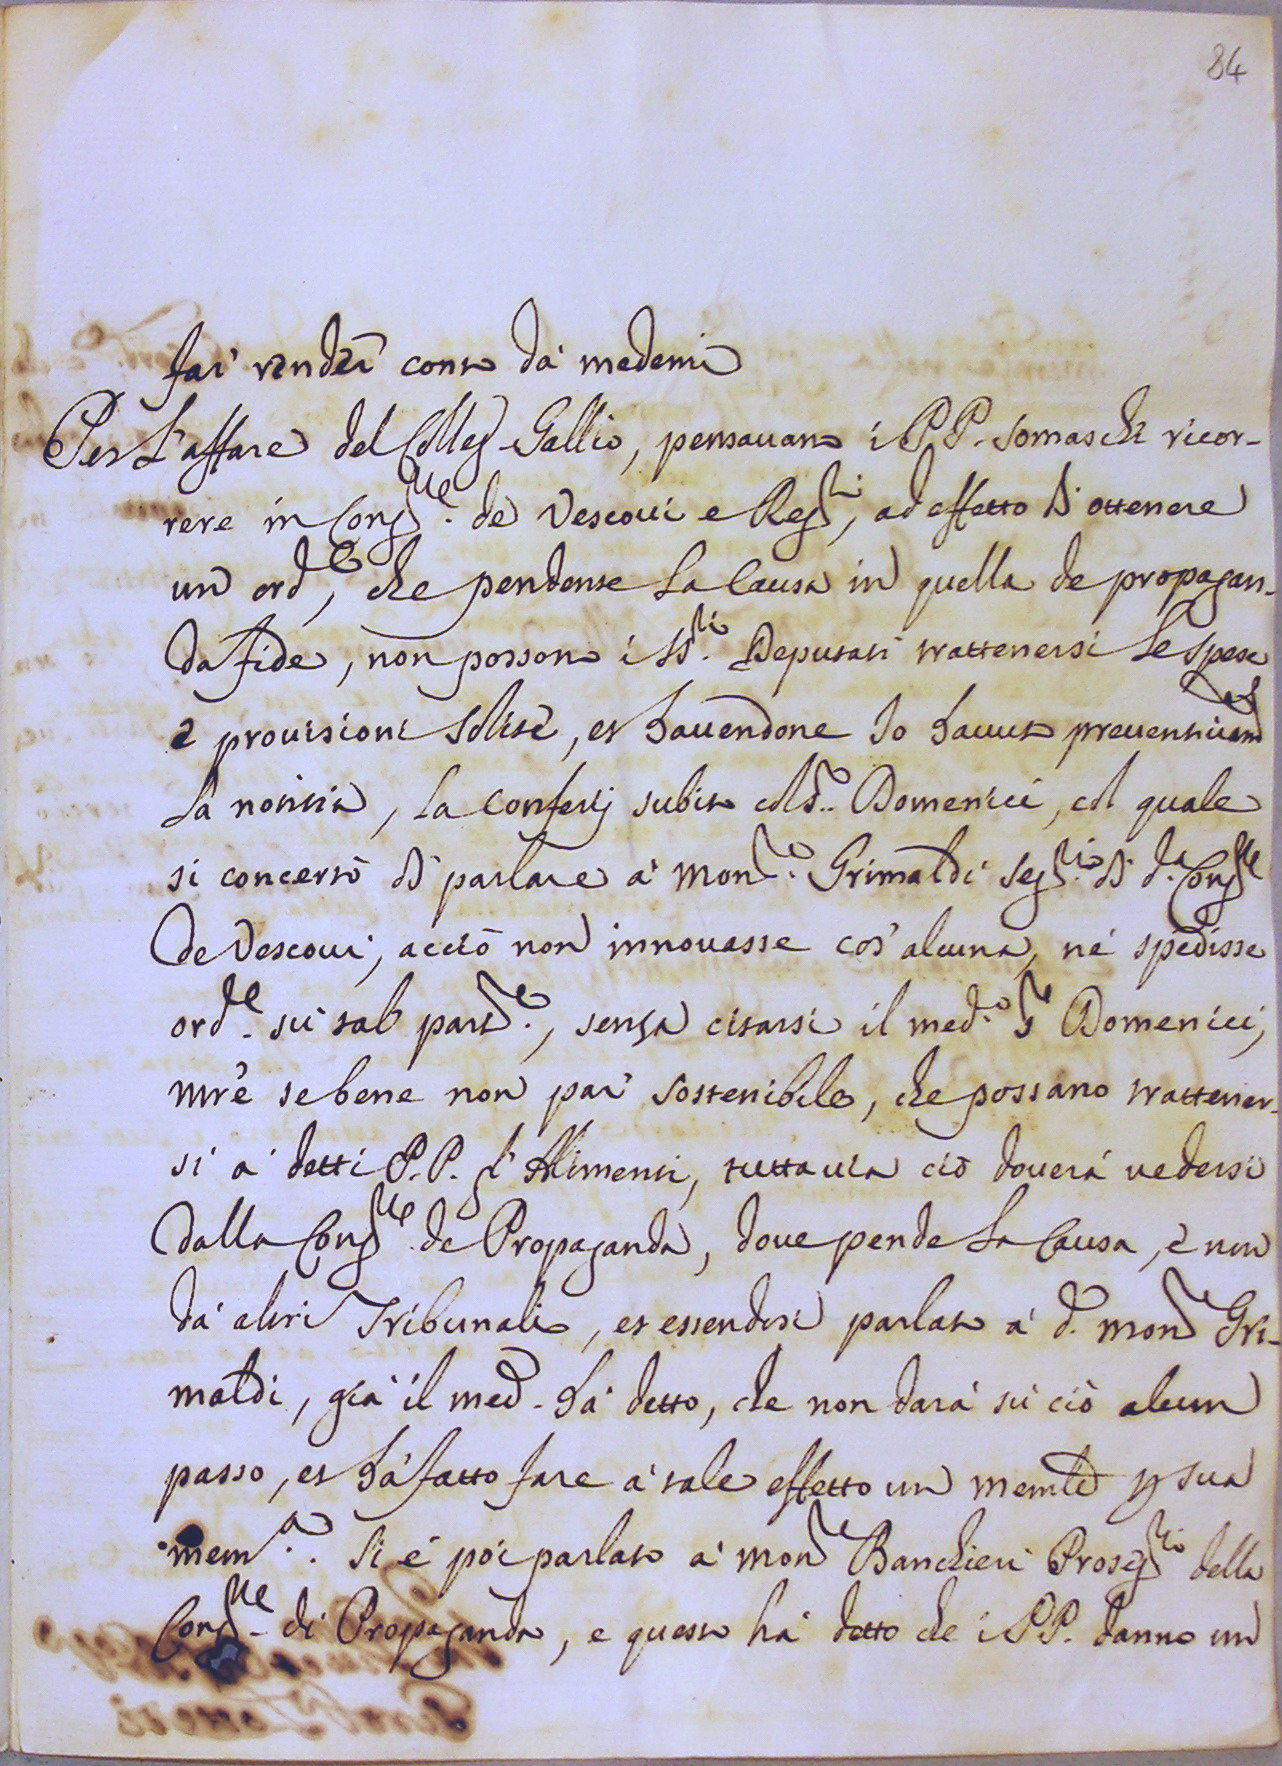 84
far' render conto da' medemi
Per L'affare del Colleg. Gallio, pensauano i PP. Somaschi ricor-
rere in Cong.ne de Vescoui e Reg.ri, ad effetto di ottenere
un ord.e, che pendente La Causa in quella de propagan-
da fide, non possono i SS.ri Deputati trattenersi Le spese
e prouisioni solite, et hauendone Io hauuto preuentiuam.te
La notitia, La conferij subito col S.r Domenici, col quale
si concertò di parlare a' Mons.re Grimaldi Seg.rio di d.a Cong.ne
de Vescoui, acciò non innouasse cos' alcuna, né spedisse
ord.e sù tal part.re, senza citarsi il med.o S.r Domenici,
mr'e se bene non par' sostenibile, che possano trattener-
si a' detti P.P. l'Alimenti, tutta uia ciò douerà uedersi
dalla Cong.ne de Propaganda, doue pende La Causa, e non
da' altri Tribunali, et essendosi parlato a' d.o Mons.re Gri-
maldi, già il med.o hà detto, che non darà sù ciò alcun
passo, et hà fatto fare a' tale effetto un memle p sua
mem.a. Si é poi parlato a' Mons.re Banchieri Proseg.rio della
Cong.ne di Propaganda, e questo hà detto che i PP. danno un